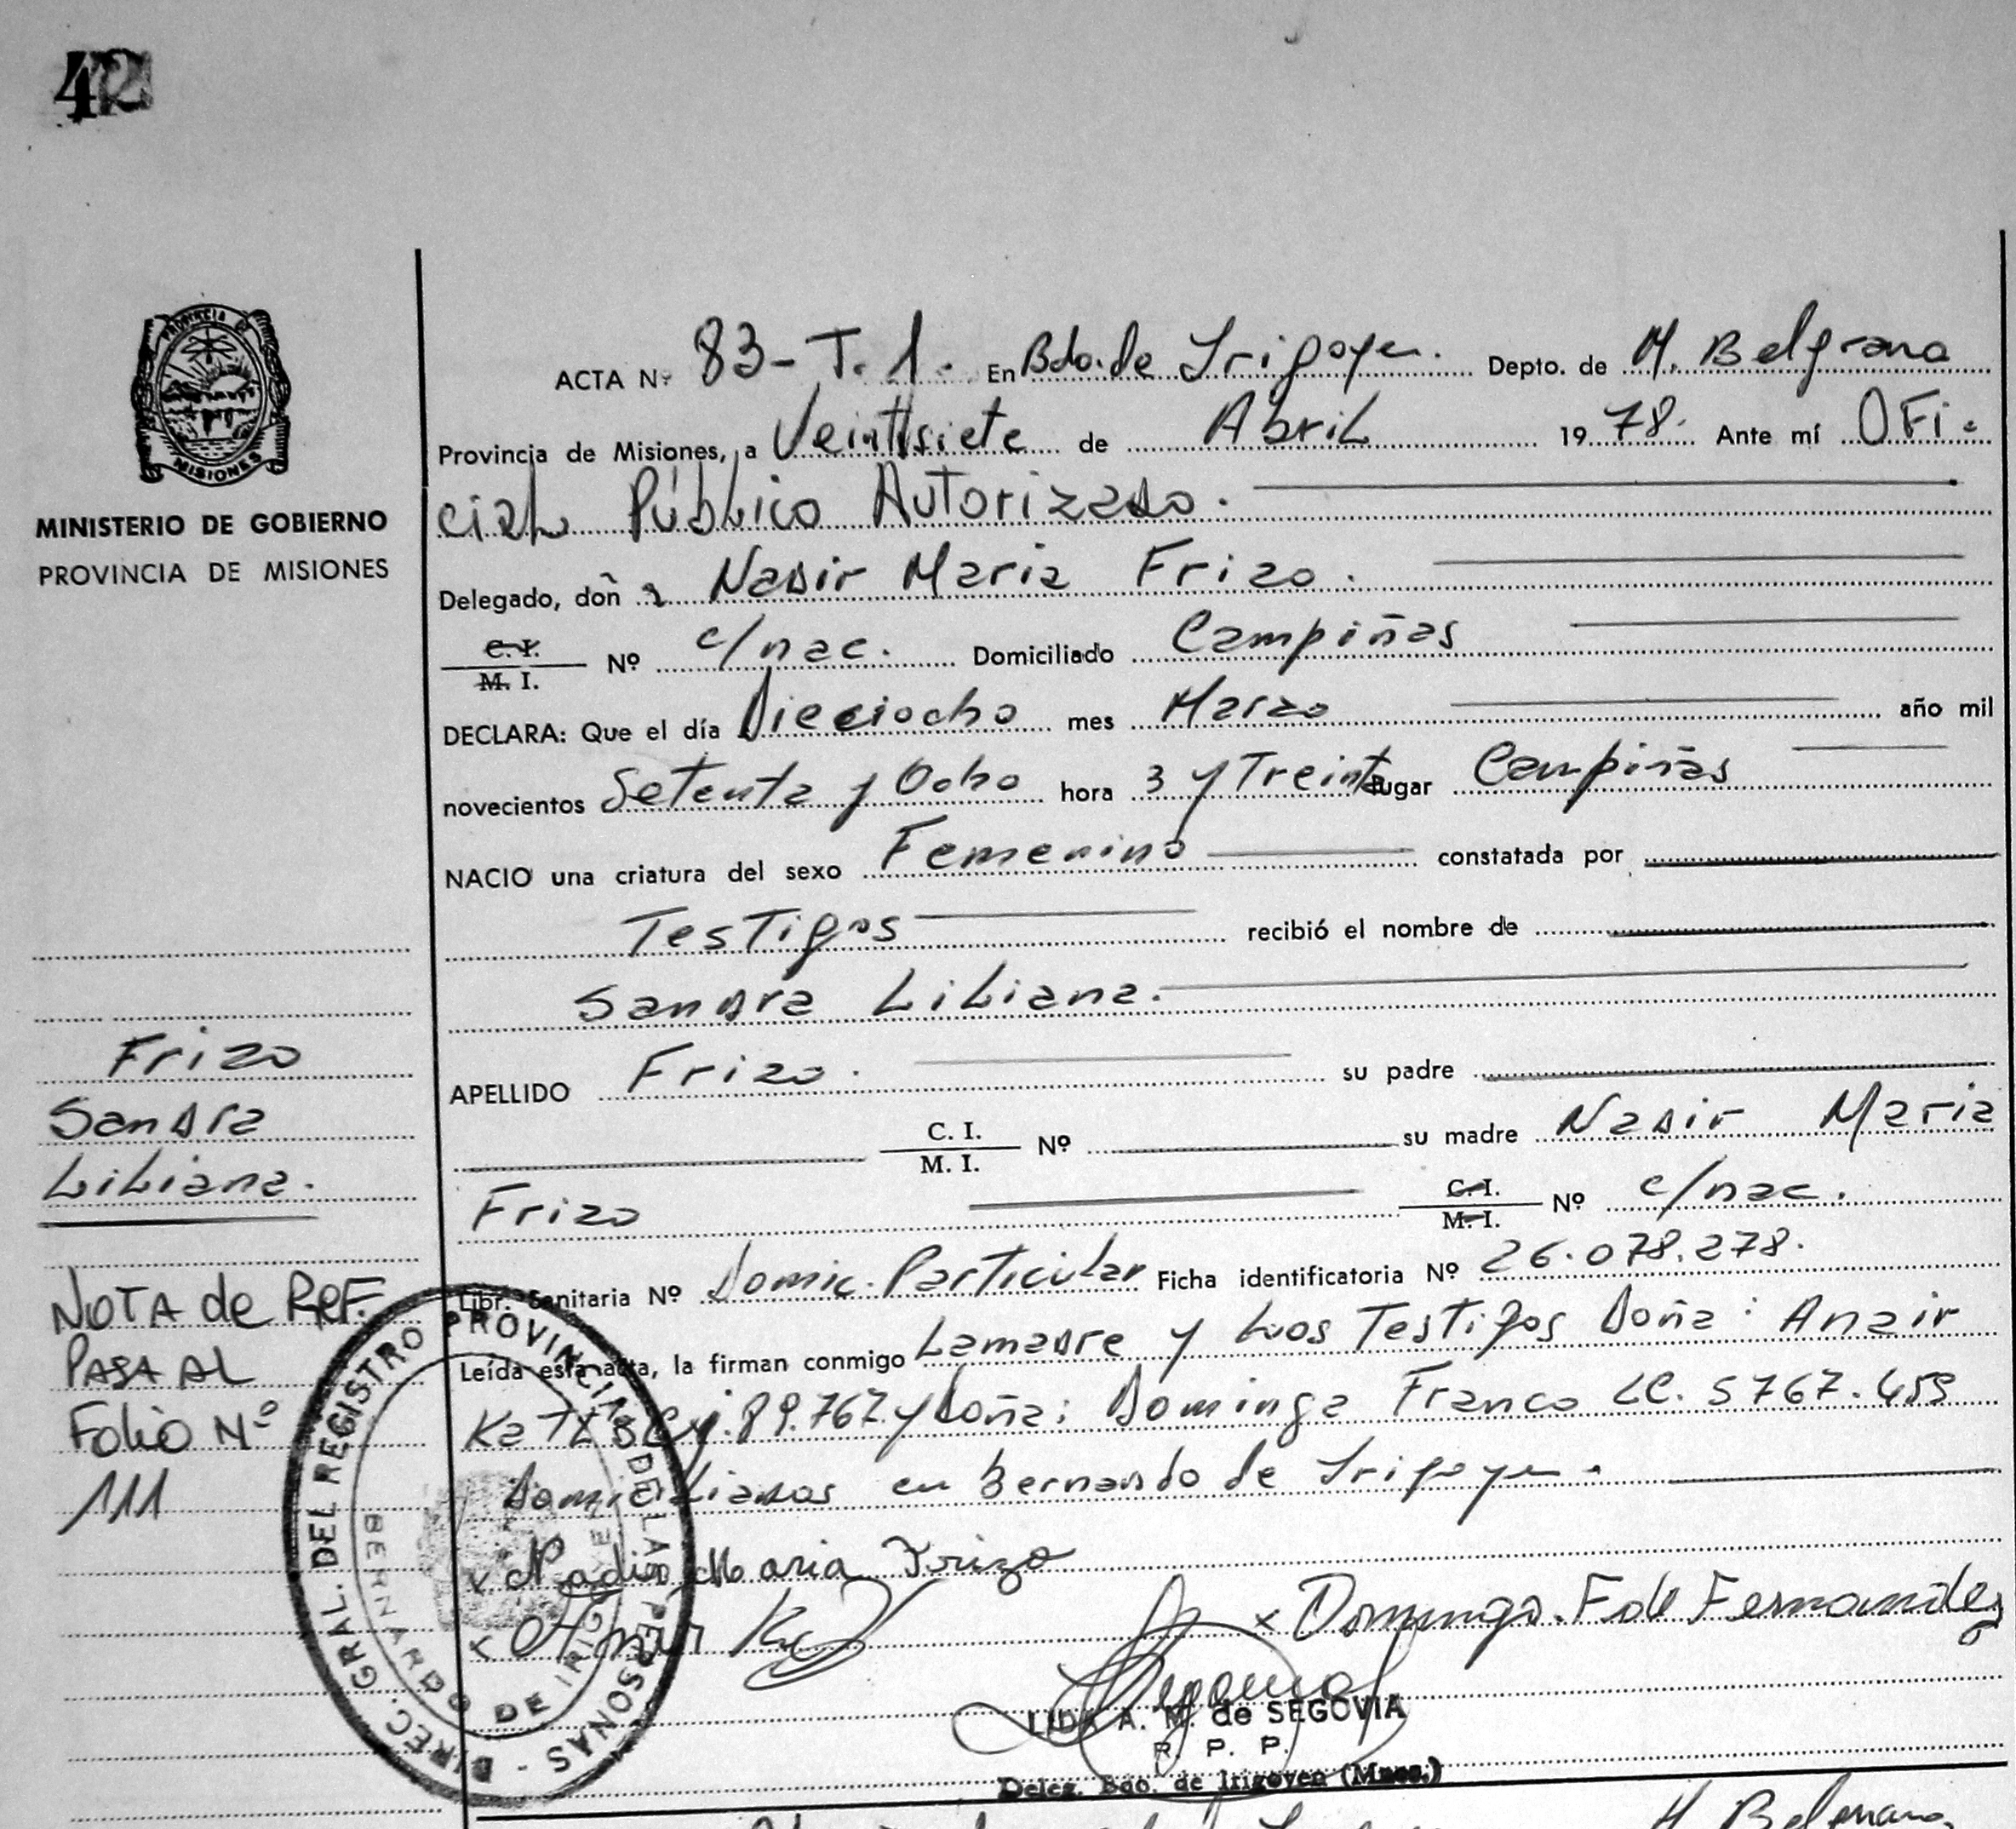 42
PROVINCIA DE
MISIONES
MINISTERIO DE GOBIERNO
PROVINCIA DE MISIONES
ACTA Nº 83-T.1. En Bdo. de Irigoyen. Depto. de M. Belgrano
Provincia de Misiones, a Veintisiete de Abril 1978. Ante mí OFi-
ciaL Público Autorizado.
Delegado, doña Nadir Maria Frizo.
C. I.
M. I. Nº c/nac. Domiciliado Campiñas
DECLARA: Que el día Dieciocho mes Marzo año mil
novecientos Setenta y Ocho hora 3 y Treinta lugar Campiñas
NACIO una criatura del sexo Femenino constatada por
Testigos recibió el nombre de
Sandra LiLiana.
APELLIDO Frizo. su padre
C. I.
M. I. Nº su madre Nadir Maria
Frizo C. I.
M. I. Nº c/nac.
Libr. Sanitaria Nº Domic. Particular Ficha identificatoria Nº 26.078.278.
Leída esta acta, la firman conmigo Lamadre y Los Testigos Doña: Anair
C.i. 89.767 y Doña: Dominga Franco LC. 5767.459
DomiciLiados en Bernardo de Irigoyen.
x Nadir Maria Frizo
x Anair
x Dominga. F de Fernandez
LIDA A. M. de SEGOVIA
R. P. P.
Deleg. Bdo. de Irigoyen (Mnes.)
Frizo
Sandra
LiLiana.
NOTA de REF.
PASA AL
Folio Nº
111
DIREC. GRAL. DEL REGISTRO PROVINCIAL DE LAS PERSONAS -
BERNARDO DE IRIGOYEN
M Belgrano